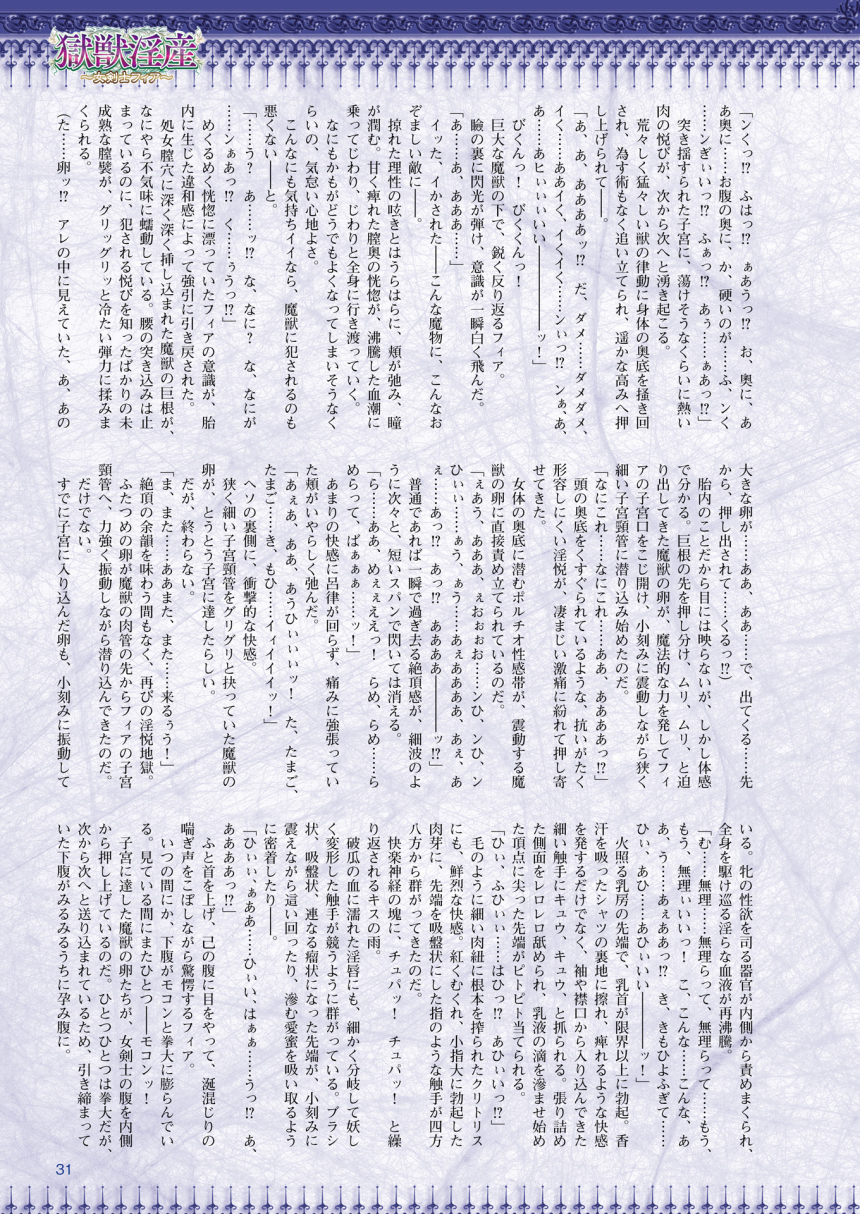 獄獣淫産
～女剣士フィア～
「ンくっ!?　ふはっ!?　ぁあうっ!?　お、奥に、あ
あ奥に……お腹の奥に、か、硬いのが……ふ、ンく
……ンぎぃいっ!?　ふぁっ!?　あぅ……ぁあっ!?」
　突き揺すられた子宮に、蕩けそうなくらいに熱い
肉の悦びが、次から次へと湧き起こる。
　荒々しく猛々しい獣の律動に身体の奥底を掻き回
され、為す術もなく追い立てられ、遥かな高みへ押
し上げられて――。
「あ、あ、ああああッ!?　だ、ダメ……ダメダメ、
イく……ああイく、イくイく……ンぃっ!?　ンぁ、あ、
あ……あヒぃいぃいい――――――ッ！」
　びくんっ！　びくくんっ！
　巨大な魔獣の下で、鋭く反り返るフィア。
　瞼の裏に閃光が弾け、意識が一瞬白く飛んだ。
「あ……あ、あああ……」
　イッた、イかされた――こんな魔物に、こんなお
ぞましい敵に――。
　掠れた理性の呟きとはうらはらに、頬が弛み、瞳
が潤む。甘く痺れた膣奥の恍惚が、沸騰した血潮に
乗ってじわり、じわりと全身に行き渡っていく。
　なにもかもがどうでもよくなってしまいそうなく
らいの、気怠い心地よさ。
　こんなにも気持ちイイなら、魔獣に犯されるのも
悪くない――と。
「……う？　あ……ッ!?　な、なに？　な、なにが
……ンぁあっ!?　く……ぅうっ!?」
　めくるめく恍惚に漂っていたフィアの意識が、胎
内に生じた違和感によって強引に引き戻された。
　処女膣穴に深く深く挿し込まれた魔獣の巨根が、
なにやら不気味に蠕動している。腰の突き込みは止
まっているのに、犯される悦びを知ったばかりの未
成熟な膣襞が、グリッグリッと冷たい弾力に揉みま
くられる。
（た……卵ッ!?　アレの中に見えていた、あ、あの
大きな卵が……ああ、ああ……で、出てくる……先
から、押し出されて……くるっ!?）
　胎内のことだから目には映らないが、しかし体感
で分かる。巨根の先を押し分け、ムリ、ムリ、と迫
り出してきた魔獣の卵が、魔法的な力を発してフィ
アの子宮口をこじ開け、小刻みに震動しながら狭く
細い子宮頸管に潜り込み始めたのだ。
「なにこれ……なにこれ……ああ、ああああっ!?」
　頭の奥底をくすぐられているような、抗いがたく
形容しにくい淫悦が、凄まじい激痛に紛れて押し寄
せてきた。
　女体の奥底に潜むポルチオ性感帯が、震動する魔
獣の卵に直接責め立てられているのだ。
「ぇあう、あああ、ぇおぉぉお……ンひ、ンひ、ン
ひぃい……ぁう、ぁう……あぇああああ、あぇ、あ
ぇ……あっ!?　あっ!?　ああああ――――ッ!?」
　普通であれば一瞬で過ぎ去る絶頂感が、細波のよ
うに次々と、短いスパンで閃いては消える。
「ら……ああ、めぇぇええっ！　らめ、らめ……ら
めらって、ばぁぁぁ……ッ！」
　あまりの快感に呂律が回らず、痛みに強張ってい
た頬がいやらしく弛んだ。
「あぇあ、ああ、あうひぃいいッ！　た、たまご、
たまご……き、もひ……イィイイイッ！」
　ヘソの裏側に、衝撃的な快感。
　狭く細い子宮頸管をグリグリと抉っていた魔獣の
卵が、とうとう子宮に達したらしい。
　だが、終わらない。
「ま、また……ああまた、また……来るぅう！」
　絶頂の余韻を味わう間もなく、再びの淫悦地獄。
　ふたつめの卵が魔獣の肉管の先からフィアの子宮
頸管へ、力強く振動しながら潜り込んできたのだ。
　だけでない。
　すでに子宮に入り込んだ卵も、小刻みに振動して
いる。牝の性欲を司る器官が内側から責めまくられ、
全身を駆け巡る淫らな血液が再沸騰。
「む……無理……無理らって、無理らって……もう、
もう、無理ぃいいっ！　こ、こんな……こんな、あ
あ、う……あぇああっ!?　き、きもひよふぎて……
ひぃ、あひ……あひぃいい――――ッ！」
　火照る乳房の先端で、乳首が限界以上に勃起。香
汗を吸ったシャツの裏地に擦れ、痺れるような快感
を発するだけでなく、袖や襟口から入り込んできた
細い触手にキュウ、キュウ、と抓られる。張り詰め
た側面をレロレロ舐められ、乳液の滴を滲ませ始め
た頂点に尖った先端がピトピト当てられる。
「ひぃ、ふひぃい……はひっ!?　あひぃいっ!?」
　毛のように細い肉紐に根本を搾られたクリトリス
にも、鮮烈な快感。紅くむくれ、小指大に勃起した
肉芽に、先端を吸盤状にした指のような触手が四方
八方から群がってきたのだ。
　快楽神経の塊に、チュパッ！　チュパッ！　と繰
り返されるキスの雨。
　破瓜の血に濡れた淫唇にも、細かく分岐して妖し
く変形した触手が競うように群がっている。ブラシ
状、吸盤状、連なる瘤状になった先端が、小刻みに
震えながら這い回ったり、滲む愛蜜を吸い取るよう
に密着したり――。
「ひぃい、ぁああ……ひぃい、はぁぁ……うっ!?　あ、
ああああっ!?」
　ふと首を上げ、己の腹に目をやって、涎混じりの
喘ぎ声をこぼしながら驚愕するフィア。
　いつの間にか、下腹がモコンと拳大に膨らんでい
る。見ている間にまたひとつ――モコンッ！
　子宮に達した魔獣の卵たちが、女剣士の腹を内側
から押し上げているのだ。ひとつひとつは拳大だが、
次から次へと送り込まれているため、引き締まって
いた下腹がみるみるうちに孕み腹に。
31